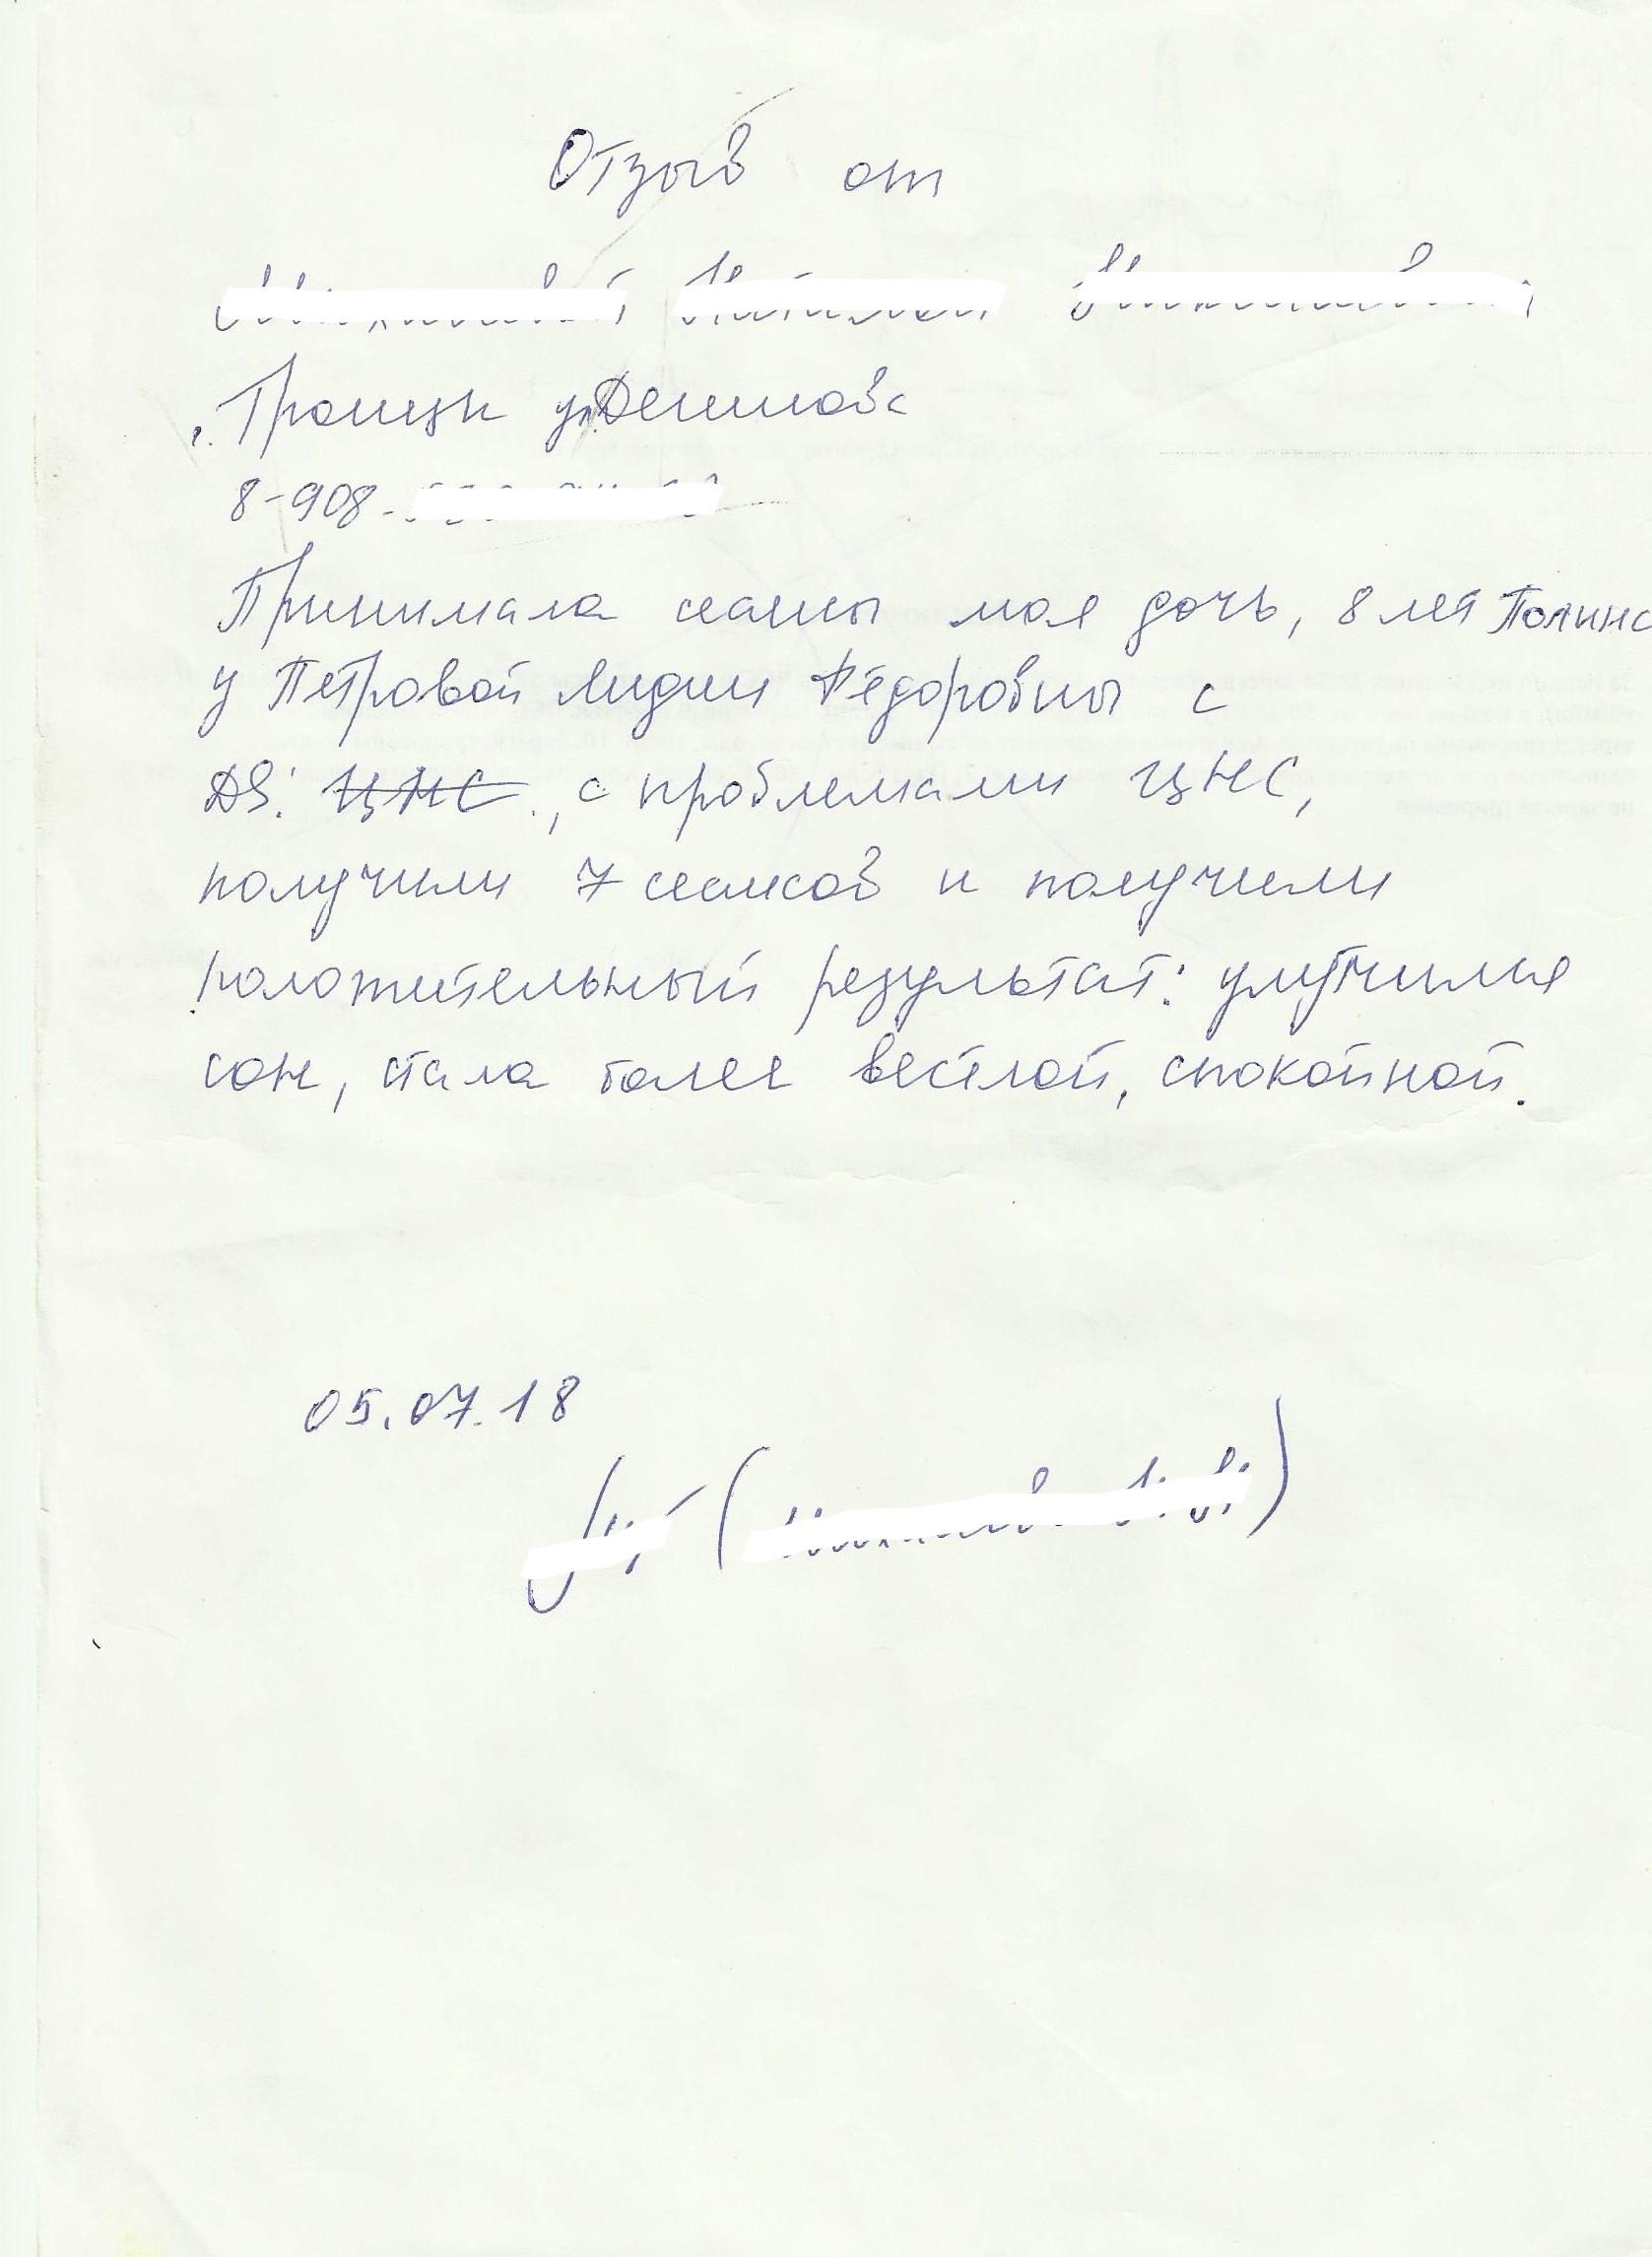 Отзыв от
г. Троицк ул. Деповская
8-908-
Принимала сеансы моя дочь, 8 лет Полина
у Петровой Лидии Фёдоровны с
DS: ЦНС., с проблемами ЦНС,
получили 7 сеансов и получили
положительный результат: улутчился
сон, стала более весёлой, спокойной.
05.07.18